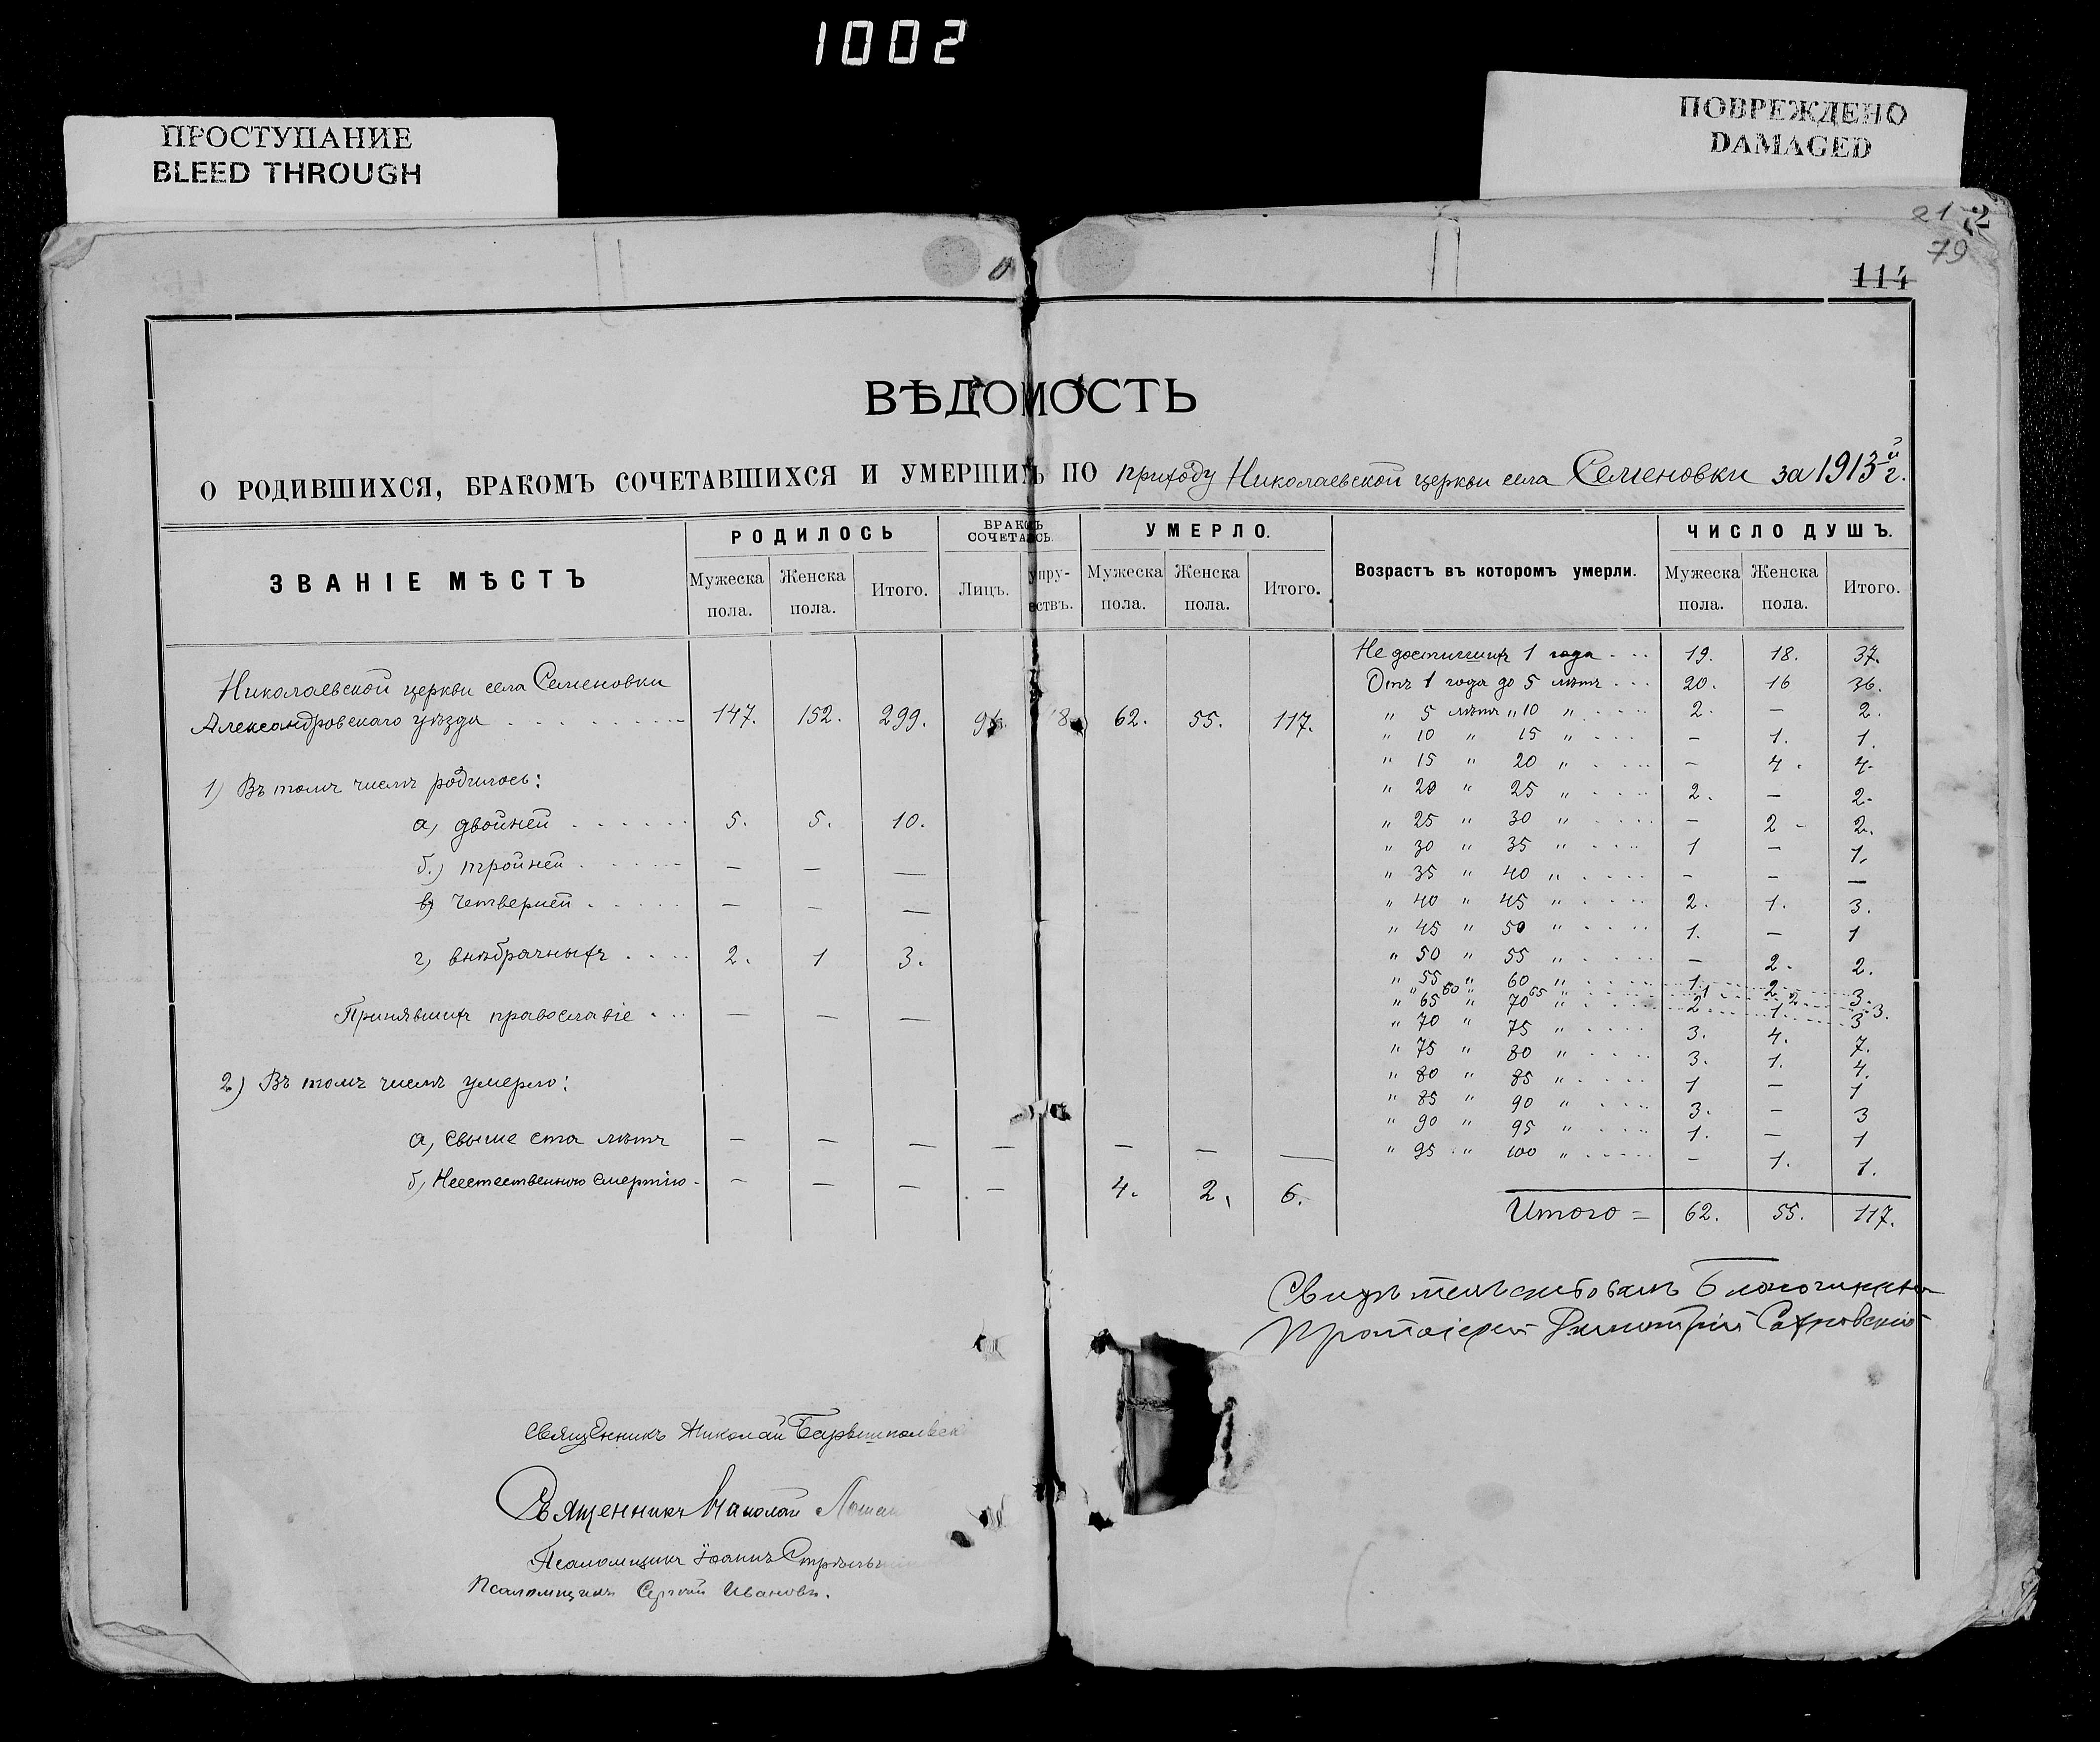 1002
ПРОСТУПАНИЕ
BLEED THROUGH
ПОВРЕЖДЕНО
DAMAGED
21 2
79
114
ВѢДОМОСТЬ
О РОДИВШИХСЯ, БРАКОМЪ СОЧЕТАВШИХСЯ И УМЕРШИХЪ ПО приходу Николаевской церкви села Семеновки за 1913й г.
ЗВАНІЕ МѢСТЪ
РОДИЛОСЬ
Мужеска пола. Женска пола. Итого.
БРАКОМЪ СОЧЕТАЛОСЬ.
Лицъ. Супружествъ.
УМЕРЛО.
Мужеска пола. Женска пола. Итого.
Возрастъ въ которомъ умерли.
ЧИСЛО ДУШЪ.
Мужеска пола. Женска пола. Итого.
Николаевской церкви села Семеновки
Александровскаго уѣзда 147. 152. 299. 62. 55. 117.
1) Въ томъ числѣ родилось:
а) двойней 5. 5. 10.
б.) тройней — — —
в) четверней — — —
г) внѣбрачныхъ 2. 1 3.
Принявшихъ православіе — — —
2) Въ томъ числѣ умерло:
а) свыше ста лѣтъ — — — — — — —
б) Неестественною смертію — — — — 4. 2. 6.
Не достигшихъ 1 года 19. 18. 37.
Отъ 1 года до 5 лѣтъ 20. 16 36.
" 5 лѣтъ " 10 " 2. — 2.
" 10 " 15 " — 1. 1.
" 15 " 20 " — 4. 4.
" 20 " 25 " 2. — 2.
" 25 " 30 " — 2 2.
" 30 " 35 " 1 — 1.
" 35 " 40 " — — —
" 40 " 45 " 2. 1. 3.
" 45 " 50 " 1. — 1
" 50 " 55 " — 2. 2.
" 55 " 60 " 1. 2. 3.
" 60 " 65 " 1 2 3.
" 65 " 70 " 2. 1. 3
" 70 " 75 " 3. 4. 7.
" 75 " 80 " 3. 1. 4.
" 80 " 85 " 1 — 1
" 85 " 90 " 3. — 3
" 90 " 95 " 1. — 1
" 95 " 100 " — 1. 1.
Итого = 62. 55. 117.
Свидѣтельствовалъ Благочинный
Протоіерей Димитрій
Священникъ Николай
Священникъ Николай
Псаломщикъ Іоаннъ
Псаломщикъ Сергѣй Ивановъ.